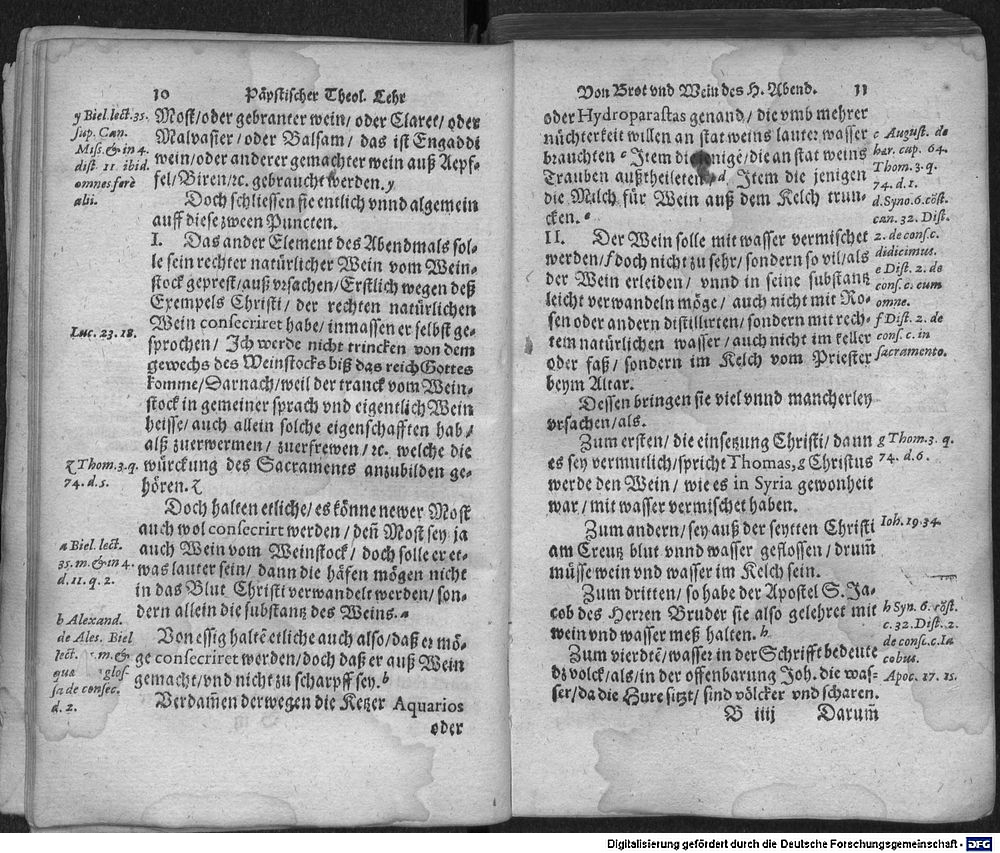 10 Päpstischer Theol. Lehr
y Biel. lect. 35.
sup. Can.
Miss. & in 4.
dist. 11. ibid.
omnes ferè
alii.
Most/oder gebranter wein/oder Claret/oder
Malvasier/oder Balsam/ das ist Engaddi
wein/oder anderer gemachter wein auß Aepf-
fel/Biren/rc. gebraucht werden. y
Doch schliessen sie entlich vnnd algemein
auff diese zween Puncten.
I. Das ander Element des Abendmals sol-
le sein rechter natürlicher Wein vom Wein-
stock geprest/auß vrsachen/Erstlich wegen deß
Exempels Christi/ der rechten natürlichen
Luc. 23. 18.
Wein consecriret habe/ inmassen er selbst ge-
sprochen/ Ich werde nicht trincken von dem
gewechs des Weinstocks biß das reich Gottes
komme/ Darnach/weil der tranck vom Wein-
stock in gemeiner sprach vnd eigentlich Wein
heisse/ auch allein solche eigenschafften hab/
alß zuerwermen/ zuerfrewen/ rc. welche die
z Thom. 3. q.
74. d. 5.
würckung des Sacraments anzubilden ge-
hören. z
Doch halten etliche/ es könne newer Most
auch wol consecrirt werden/ deñ Most sey ja
a Biel. lect.
35. m. & in 4.
d. 11. q. 2.
auch Wein vom Weinstock/ doch solle er et-
was lauter sein/ dann die häfen mögen nicht
in das Blut Christi verwandelt werden/ son-
dern allein die substantz des Weins. a
b Alexand.
de Ales. Biel
lect. m. &
qua glos-
sa de consec.
d. 2.
Von essig haltẽ etliche auch also/daß er mö-
ge consecriret werden/doch daß er auß Wein
gemacht/vnd nicht zu scharpff sey. b
Verdam̃en derwegen die Ketzer Aquarios
oder
Von Brot vnd Wein des H. Abend. 11
oder Hydroparastas genand/die vmb mehrer
nüchterkeit willen an stat weins lauter wasser
brauchten c Item die /die an stat weins
Trauben außtheileten/ d Item die jenigen
die Milch für Wein auß dem Kelch trun-
cken. e
c August. de
har. cap. 64.
Thom. 3. q.
74. d. 1.
d. Syno. 6. cöst.
can. 32. Dist.
2. de cons. c.
didicimus.
e Dist. 2. de
cons. c. cum
omne.
f Dist. 2. de
cons. c. in
sacramento.
II. Der Wein solle mit wasser vermischet
werden/f doch nicht zu sehr/ sondern so vil/als
der Wein erleiden/ vnnd in seine substantz
leicht verwandeln möge/ auch nicht mit Ro-
sen oder andern distillirten/ sondern mit rech-
tem natürlichen wasser/ auch nicht im keller
oder faß/ sondern im Kelch vom Priester
beym Altar.
Dessen bringen sie viel vnnd mancherley
vrsachen/als.
Zum ersten/ die einsetzung Christi/ dann
es sey vermutlich/spricht Thomas, g Christus
werde den Wein/ wie es in Syria gewonheit
war/ mit wasser vermischet haben.
g Thom. 3. q.
74. d. 6.
Zum andern/ sey auß der seytten Christi
am Creutz blut vnnd wasser geflossen/ drum̃
müsse wein vnd wasser im Kelch sein.
Ioh. 19. 34.
Zum dritten/ so habe der Apostel S. Ja-
cob des Herren Bruder sie also gelehret mit
wein vnd wasser meß halten. h
h Syn. 6. cöst.
c. 32. Dist. 2.
de cons. c. Ia
cobus.
Zum vierdtẽ/ wasser in der Schrifft bedeute
dz volck/als/ in der offenbarung Joh. die was-
ser/da die Hure sitzt/ sind völcker vnd scharen.
Apoc. 17. 15.
B iiij Darum̃
Digitalisierung gefördert durch die Deutsche Forschungsgemeinschaft - DFG